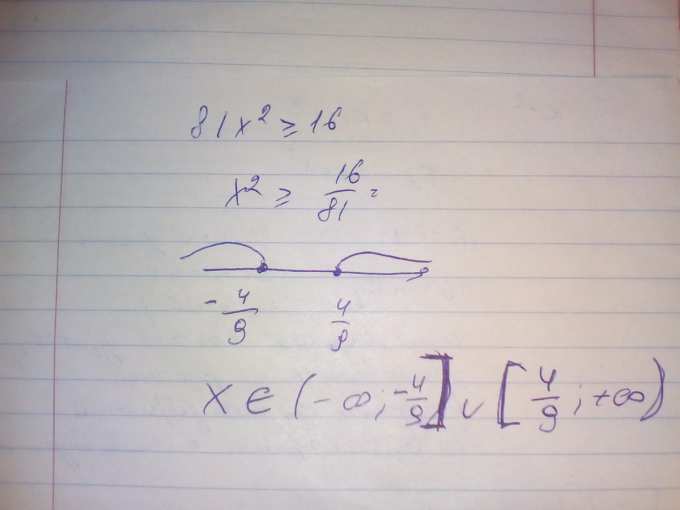 81x² ≥ 16
x² ≥ 16/81
-4/9 4/9
x ∈ (-∞; -4/9] ∪ [4/9; +∞)